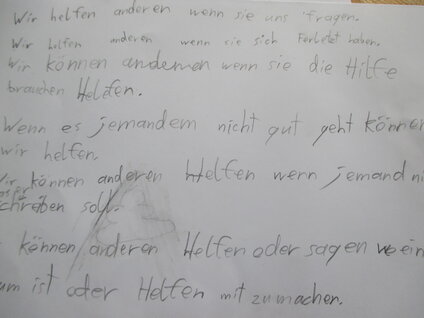 Wir helfen anderen wenn sie uns fragen.
Wir helfen anderen wenn sie sich Ferletzt haben.
Wir können andemen wenn sie die Hilfe
brauchen Helefen.
Wenn es jemandem nicht gut geht können
wir helfen.
Wir können anderen Helfen wenn jemand ni
schreiben soll.
können anderen Helfen oder sagen wo ein
um ist oder Helfen mit zu machen.